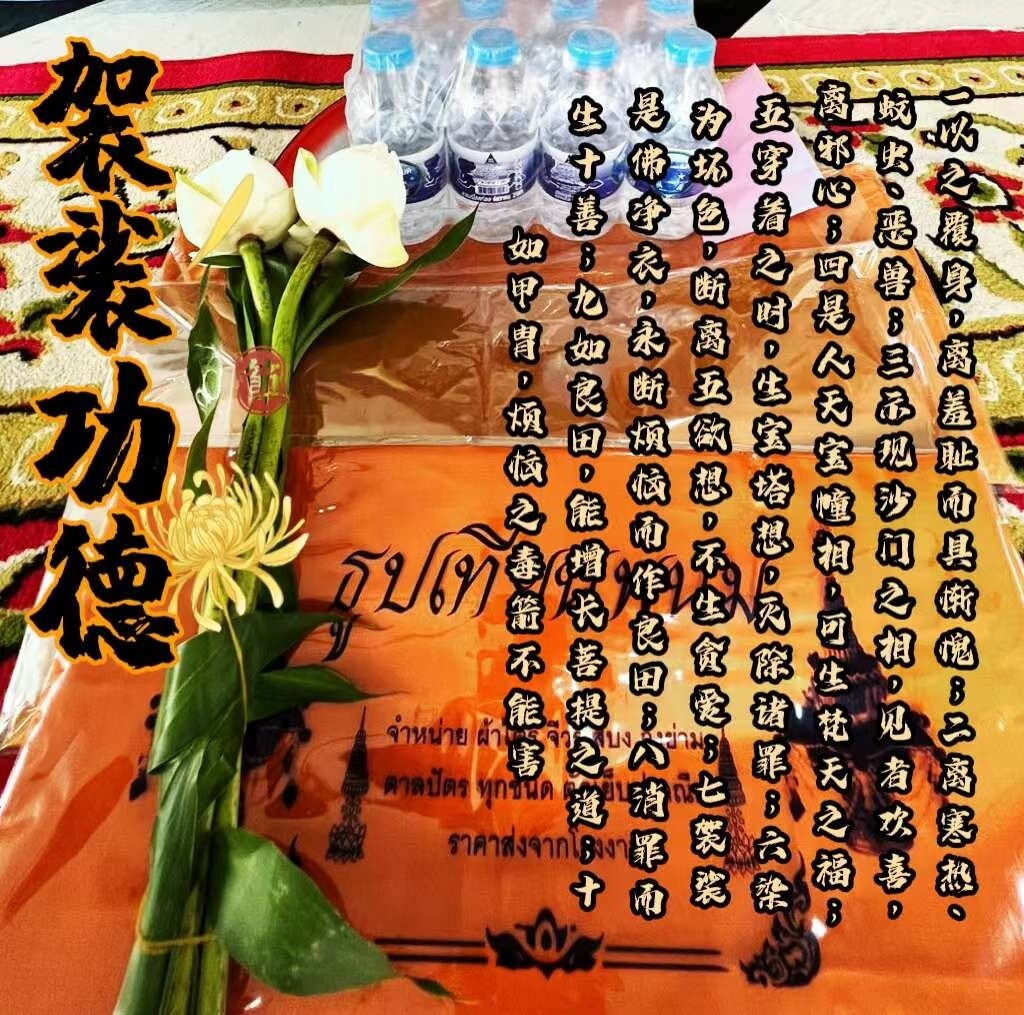 袈裟功德
一以之覆身，离羞耻而具惭愧；二离寒热、
蚊虫、恶兽；三示现沙门之相，见者欢喜，
离邪心；四是人天宝幢相，可生梵天之福；
五穿着之时，生宝塔想，灭除诸罪；六染
为坏色，断离五欲想，不生贪爱；七袈裟
是佛净衣，永断烦恼而作良田；八消罪而
生十善；九如良田，能增长菩提之道；十
如甲胄，烦恼之毒箭不能害
จำหน่าย ผ้าไตร จีวร สบง
ตาลปัตร ทุกชนิด
ราคาส่งจากโรงงาน